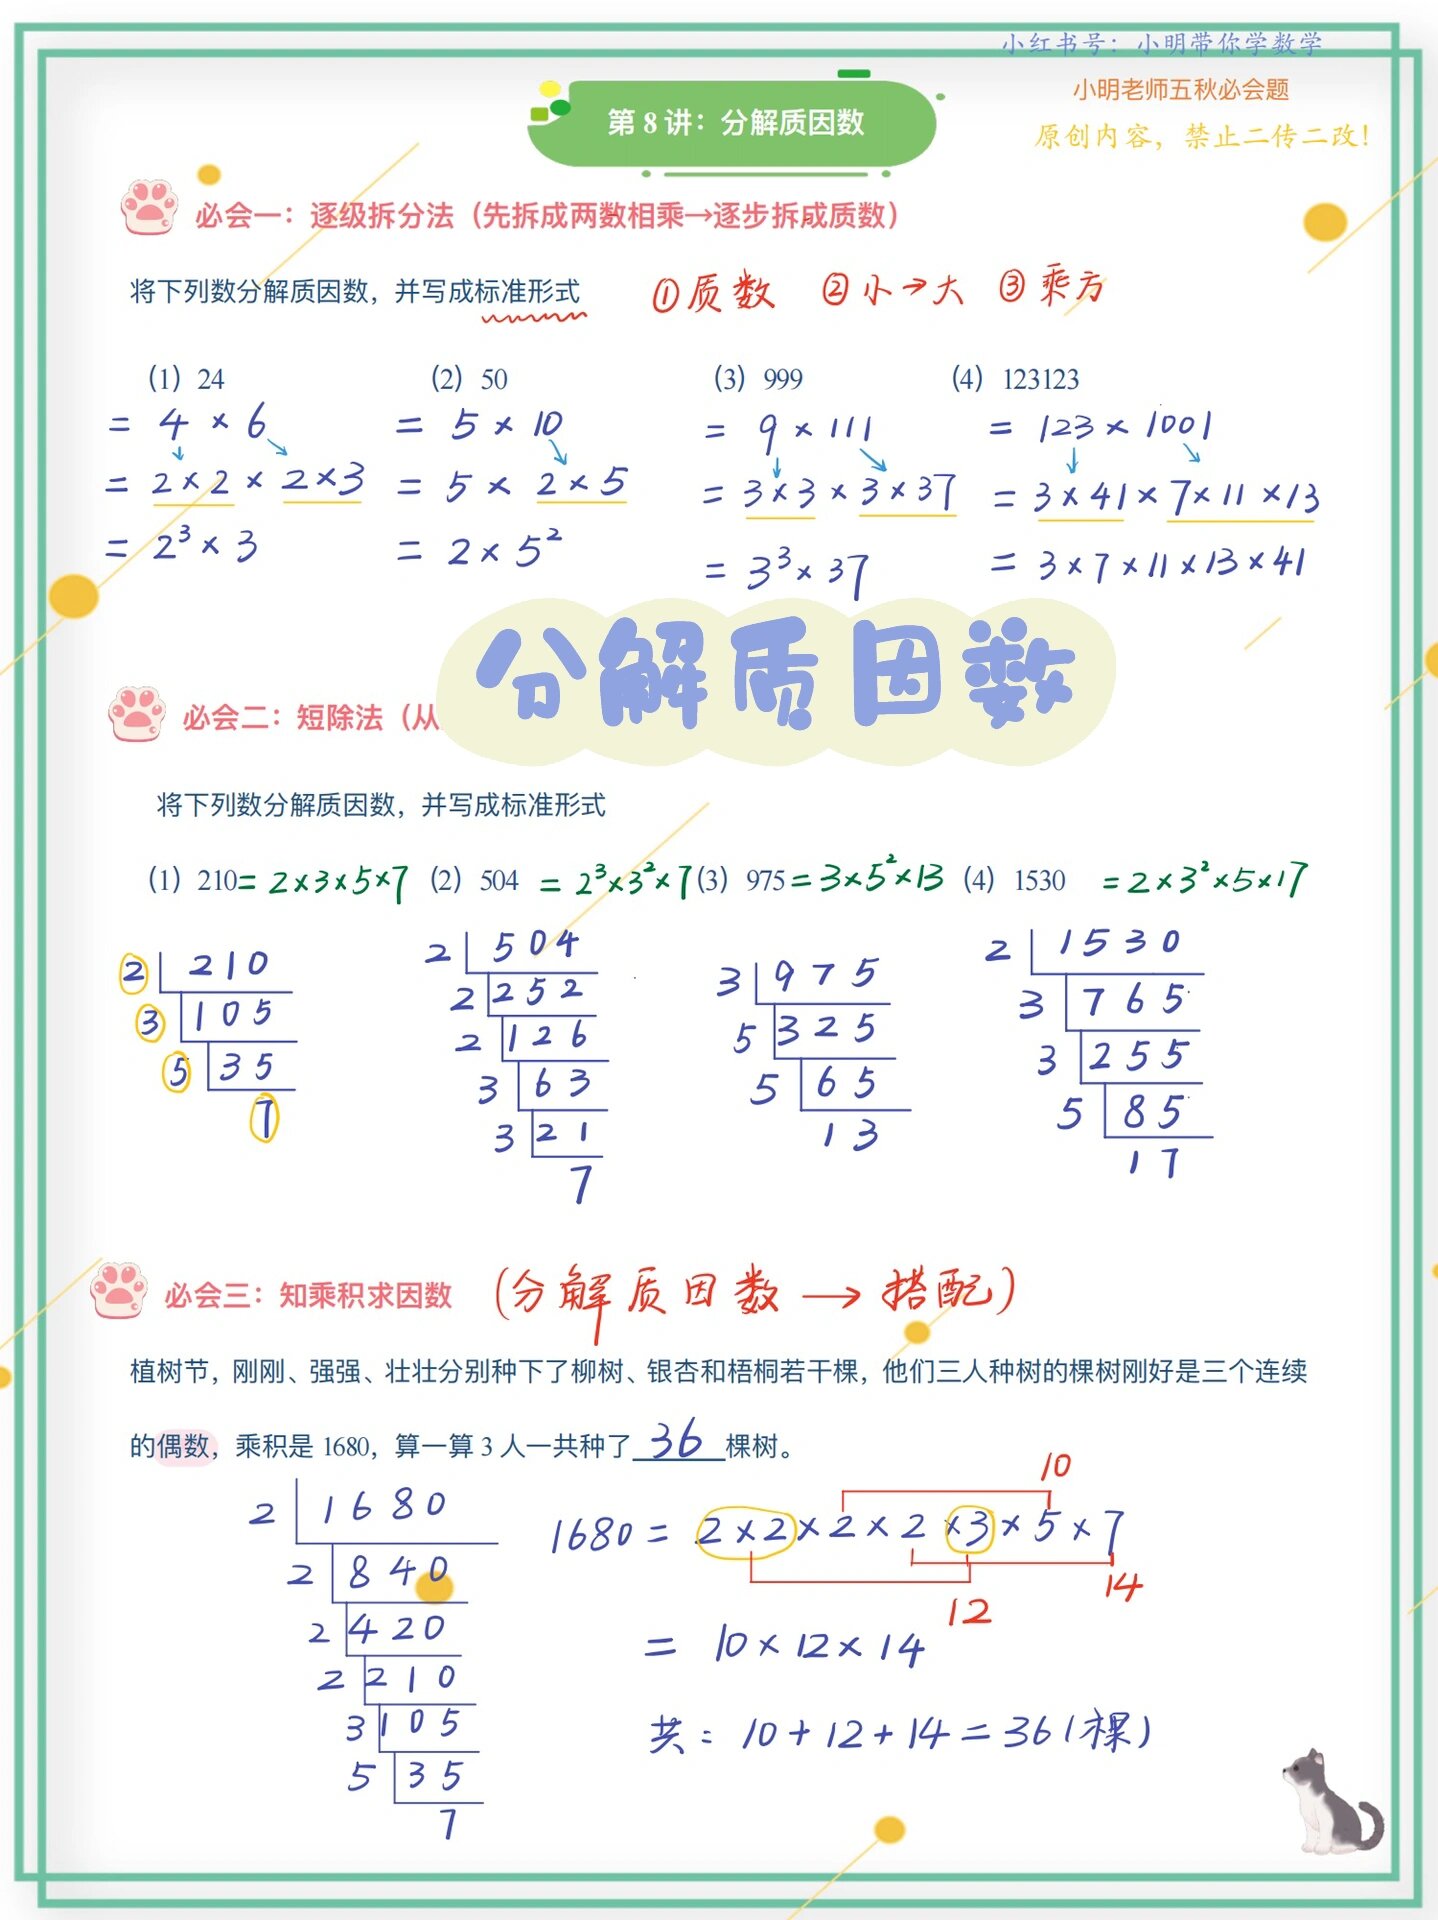 小红书号：小明带你学数学
小明老师五秋必会题
原创内容，禁止二传二改！
第 8 讲：分解质因数
必会一：逐级拆分法（先拆成两数相乘→逐步拆成质数）
将下列数分解质因数，并写成标准形式 ①质数 ②小→大 ③乘方
（1）24 （2）50 （3）999 （4）123123
= 4 × 6 = 5 × 10 = 9 × 111 = 123 × 1001
= 2 × 2 × 2 × 3 = 5 × 2 × 5 = 3 × 3 × 3 × 37 = 3 × 41 × 7 × 11 × 13
= 2³ × 3 = 2 × 5² = 3³ × 37 = 3 × 7 × 11 × 13 × 41
分解质因数
必会二：短除法（从
将下列数分解质因数，并写成标准形式
（1）210 = 2×3×5×7 （2）504 = 2³×3²×7 （3）975 = 3×5²×13 （4）1530 = 2×3²×5×17
2 210
3 105
5 35
7
2 504
2 252
2 126
3 63
3 21
7
3 975
5 325
5 65
13
2 1530
3 765
3 255
5 85
17
必会三：知乘积求因数 （分解质因数→搭配）
植树节，刚刚、强强、壮壮分别种下了柳树、银杏和梧桐若干棵，他们三人种树的棵树刚好是三个连续
的偶数，乘积是 1680，算一算 3 人一共种了 36 棵树。
2 1680
2 840
2 420
2 210
3 105
5 35
7
10
1680 = 2×2×2×2×3×5×7
14
12
= 10×12×14
共：10+12+14=36（棵）